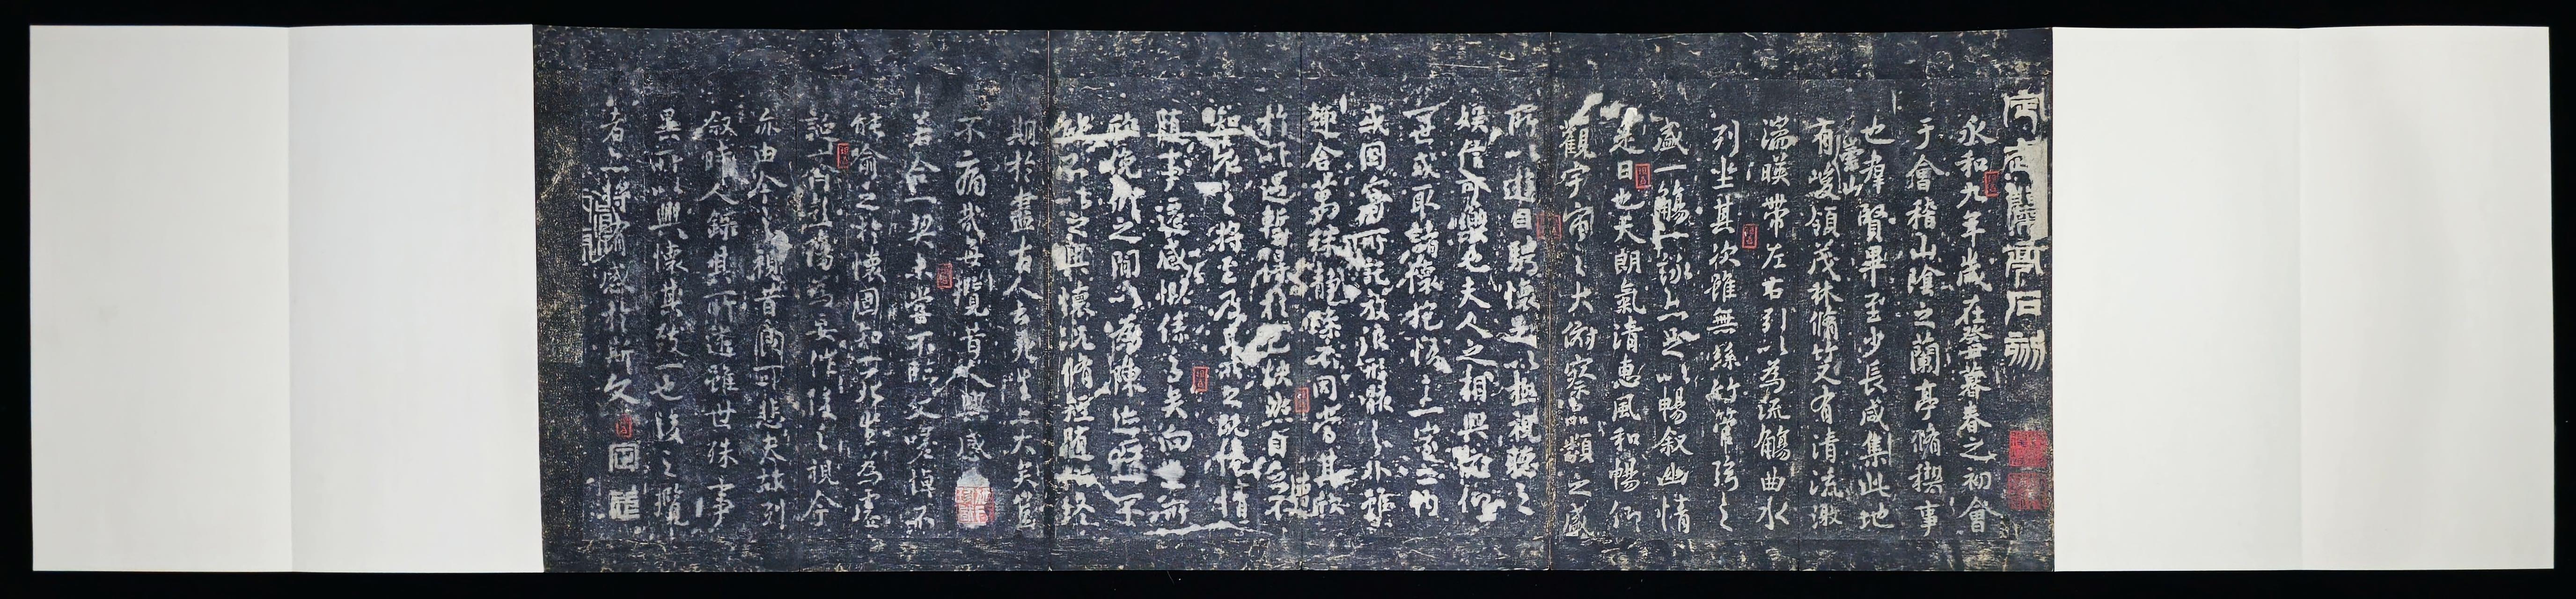 定武蘭亭石刻
永和九年歲在癸丑暮春之初會
于會稽山陰之蘭亭脩稧事
也羣賢畢至少長咸集此地
崇山
有峻領茂林脩竹又有清流激
湍暎帶左右引以為流觴曲水
列坐其次雖無絲竹管弦之
盛一觴一詠亦足以暢叙幽情
是日也天朗氣清惠風和暢仰
觀宇宙之大俯察品類之盛
所以遊目騁懷足以極視聽之
娛信可樂也夫人之相與俯仰
一世或取諸懷抱悟言一室之內
或因寄所託放浪形骸之外雖
趣舍萬殊靜躁不同當其欣
於所遇暫得於己快然自足不
知老之將至及其所之既惓情
隨事遷感慨係之矣向之所
欣俛仰之間以為陳迹猶不
能不以之興懷況脩短隨化終
期於盡古人云死生亦大矣豈
不痛哉每攬昔人興感
若合一契未嘗不臨文嗟悼不
能喻之於懷固知一死生為虛
誕齊彭殤為妄作後之視今
亦由今之視昔悲夫故列
叙時人錄其所述雖世殊事
異所以興懷其致一也後之攬
者亦將有感於斯文